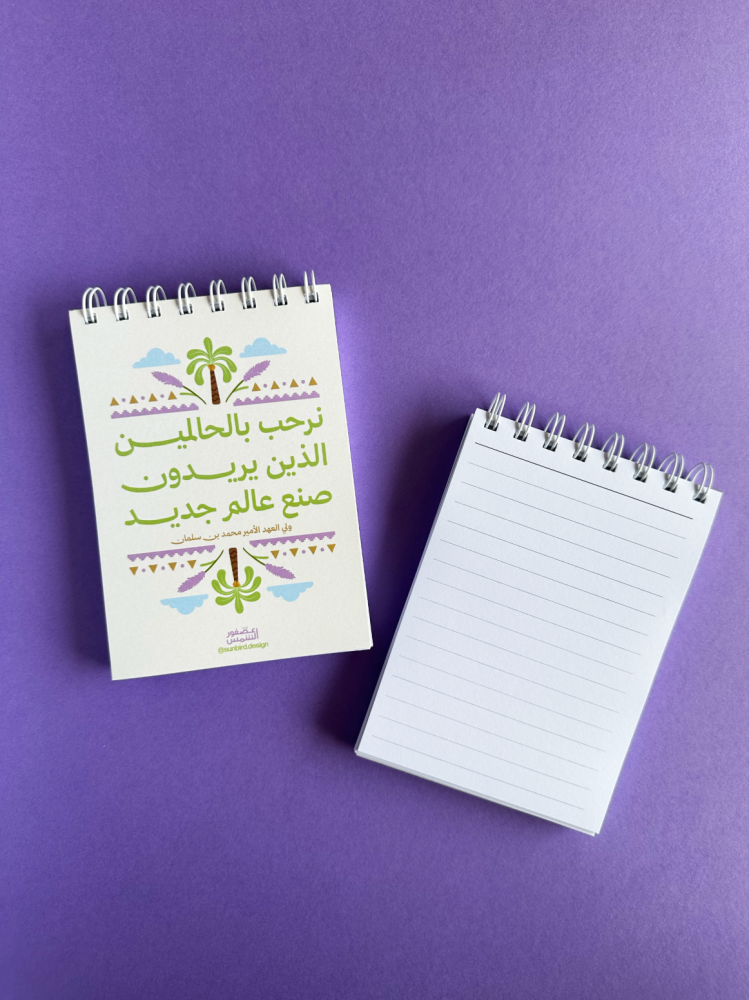 نرحب بالحالمين
الذين يريدون
صنع عالم جديد
ولي العهد الأمير محمد بن سلمان
عصفور
الشمس
@sunbird.design